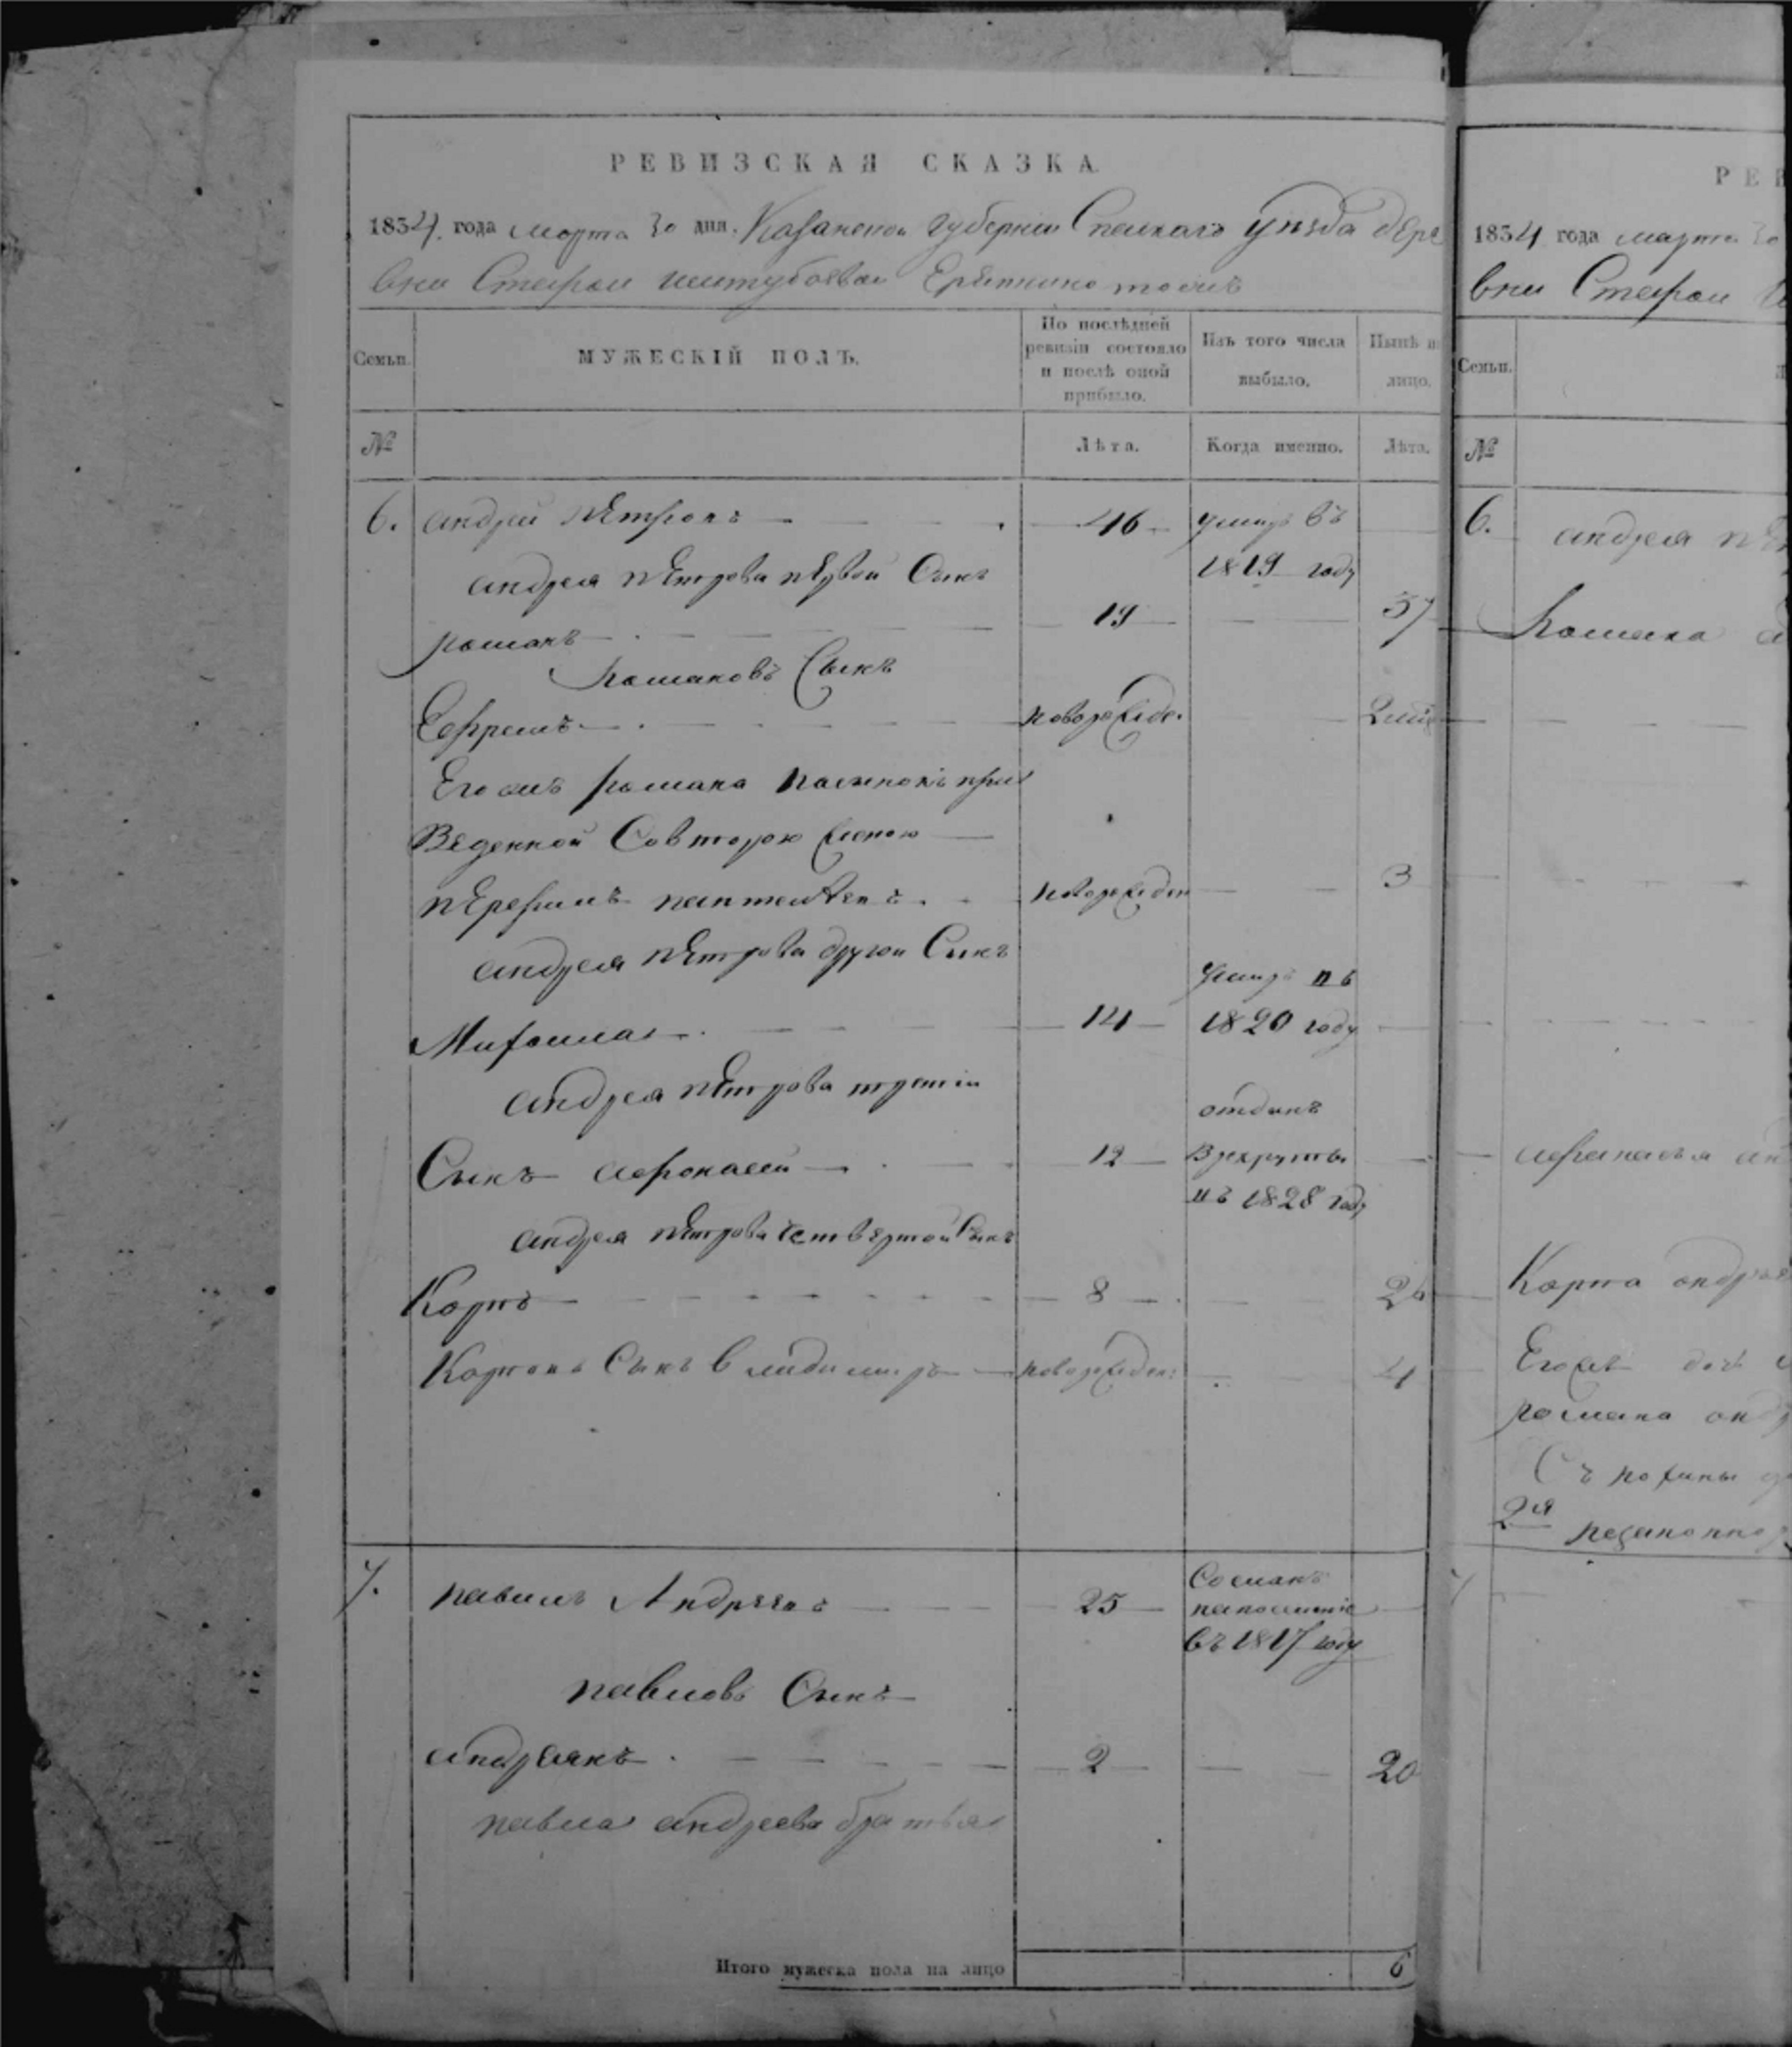 РЕВИЗСКАЯ СКАЗКА
1834 года марта 30 дня. Казанской губернии Спаскаго уѣзда дере
вни Старой
Семьи.
МУЖЕСКІЙ ПОЛЪ.
По послѣдней ревизіи состояло и послѣ оной прибыло.
Изъ того числа выбыло.
Нынѣ н лицо.
№
Лѣта.
Когда именно.
Лѣта.
6. андрей петровъ 46 умиръ въ
1819 году
андрея петрова первой Сынъ
романъ 19 37
Романовъ Сынъ
Ефремъ новорожде.
Его онъ романа пасынокъ при
веденной Совторою женою
новорожден 3
андрея петрова другой Сынъ
умиръ въ
14 1820 году
андрея петрова третій
отданъ
Сынъ афонасей 12 Врекруты
въ 1828 году
андрея петрова четвертой Сынъ
Карпъ 8 26
Карповъ Сынъ владимиръ новорожден: 4
7. павилъ Андреевъ 25 Сосланъ
напоселеніе
въ 1817 году
павловъ Сынъ
андреянъ 2 20
павла андреева братья
Итого мужеска пола на лицо 6
РЕВ
1834 года марта 30
вни Старой
Семьи.
№
6. андрея пе
Романа а
афанасья ан
Карпа андрее
Егоже доч
романа анд
2ая
7